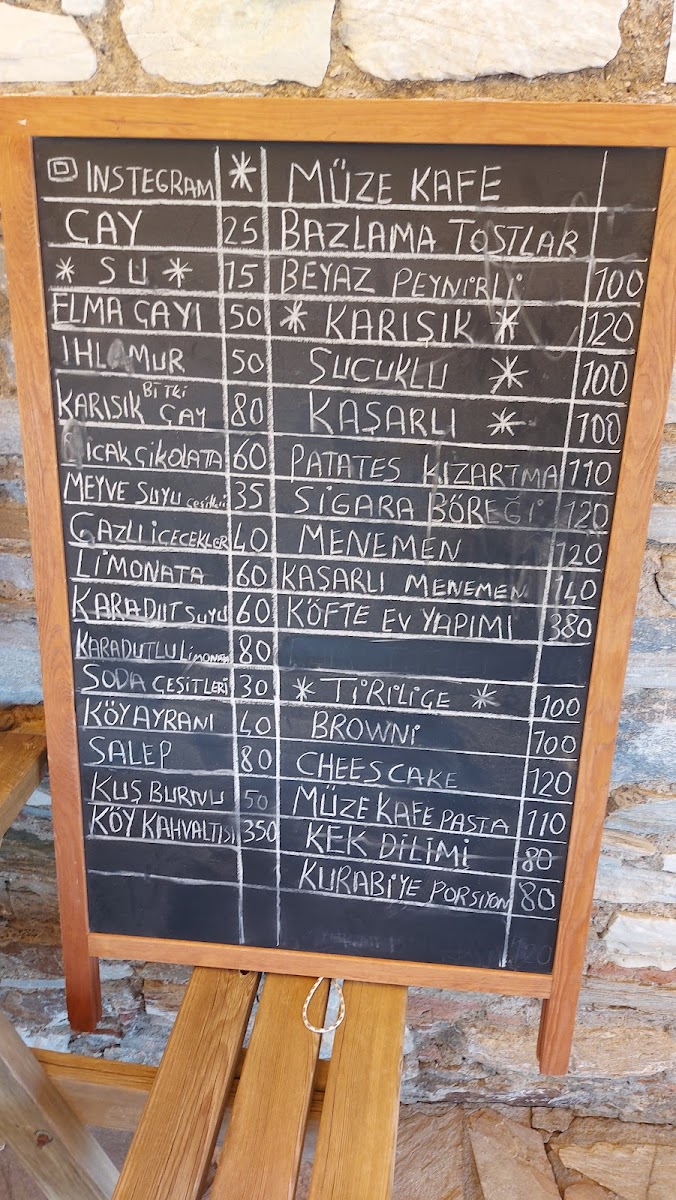 INSTEGRAM *
ÇAY 25
* SU * 15
ELMA ÇAYI 50
IHLAMUR 50
KARIŞIK BİTKİ ÇAY 80
SICAK ÇİKOLATA 60
MEYVE SUYU çeşitleri 35
GAZLI İÇECEKLER 40
LİMONATA 60
KARADUT SUYU 60
KARADUTLU LİMONATA 80
SODA ÇEŞİTLERİ 30
KÖY AYRANI 40
SALEP 80
KUŞ BURNU 50
KÖY KAHVALTISI 350
MÜZE KAFE
BAZLAMA TOSTLAR
BEYAZ PEYNİRLİ 100
* KARIŞIK * 120
SUCUKLU * 100
KAŞARLI * 100
PATATES KIZARTMA 110
SİGARA BÖREĞİ 120
MENEMEN 120
KAŞARLI MENEMEN 140
KÖFTE EV YAPIMI 380
* TİRİLİÇE * 100
BROWNİ 100
CHEES CAKE 120
MÜZE KAFE PASTA 110
KEK DİLİMİ 80
KURABİYE PORSİYON 80